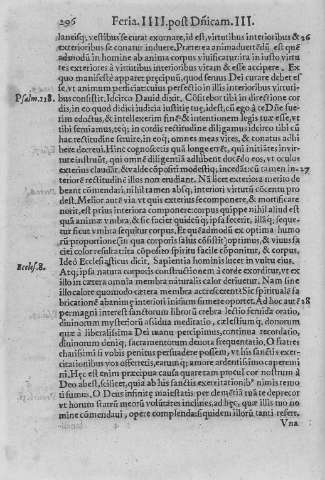 296 Feria. IIII. post Dñicam. III.
stibus se curat exornare, id est, virtutibus interioribus & 26
exterioribus se conatur induere. Præterea animaduertēdū est quē
admodū in homine ab anima corpus viuificatur, ita in iusto virtu
tes exteriores à virtutibus interioribus vitam & esse accipere. Ex
quo manifestè apparet præcipuū, quod seruus Dei curare debet es
se, vt animum perficiat: cuius perfectio in illis interioribus virtuti
Psalm. 118. bus consistit. Idcirco Dauid dixit, Cōfitebor tibi in directione cor
dis, in eo quod didici iudicia iustitię tuę, idest, cū ego à te Dñe fue
rim edoctus, & intellexerim finē & intentionem legis tuæ esse, vt
tibi seruiamus, teq; in cordis rectitudine diligamus: idcirco tibi cū
hac rectitudine seruire, in eoq; omnes meas vites, & conatus adhi
bere decreui. Hinc cognoscetis quā longe erret, qui initiātes in vir
tute instruūt, qui omnē diligentiā adhibent docēdo eos, vt oculos
exterius claudāt, & valdè cōpositi modestiq; incedāt: cū tamen in 27
teriore rectitudinē illos non erudiant. Nā licet exteriora merito de
beant cōmendari, nihil tamen absq; interiori virtuti cōcentu pro
dest. Melior autē via vt quis exterius se componere, & mortificare
norit, est prius interiora componere: corpus quippe nihil aliud est
quā animæ vmbra, & sic faciet quidcūq; ipsa fecerit, illāq; seque
tur sicut vmbra sequitur corpus. Et quēadmodū ex optimo humo
rū proportione (in qua corporis salus cōsistit) optimus, & viuus fa
ciei color resultat: ita cōposito spiritu facile cōponitur, & corpus.
Eccles. 8. Ideò Ecclesiasticus dicit, Sapientia hominis lucet in vultu eius.
Atq; ipsa natura corporis constructionem à corde exorditur, vt ex
illo in cætera omnia membra naturalis calor deriuetur. Nam sine
illo calore quomodo cætera membra accrescerent? Sic spirituale fa
bricationē ab animę interiori initium sumere oportet. Ad hoc autē 28
permagni interest sanctorum librorū crebra lectio, seruida oratio,
diuinorum mysteriorū assidua meditatio, cælestium q; donorum
quæ à liberalissima Dei manu percipimus, continua recordatio,
diuinorum deniq; sacramentorum deuota frequentatio. O fratres
charissimi si vobis penitus persuadere possem, vt his sanctis exer-
citationibus vos offerretis, earumq; amore ardentissimo caperemi
ni. Hęc est enim præcipua causa quare tam procul cor nostrum à
Deo abest, scilicet, quia ab his sanctis exercitationib⁹ nimis remo
tū sumus. O Deus infinitę maiestatis per clemētiā tuā te deprecor
vt horum fratrū meorū volūtates inclines, ad hęc, quæ illis tuo no
mine cōmendaui, opere complenda: siquidem illorū tanti refert.
Vna